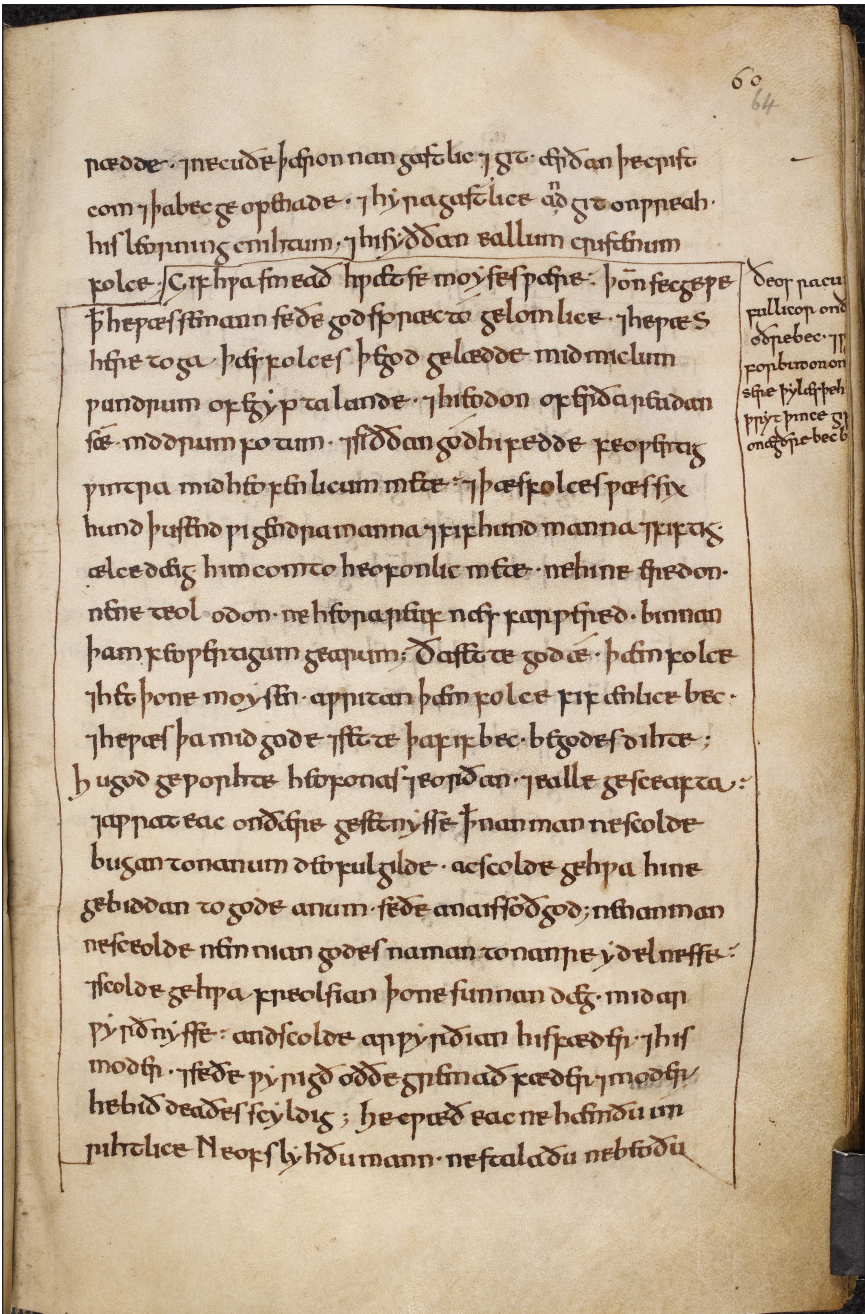 60
64
rædde · ⁊ ne cuðe þær on nan gastlic ⁊git · ær ðan þe crist
com ⁊ þa bec geopenade · ⁊ hyra gastlice andgit onwreah ·
his leorning cnihtum, ⁊ hi syððan eallum cristenum
folce · Gif hwa smeað hwæt se moyses wære: þon̄ secge we
ꝥ he wæs se mann se ðe god spræc to gelomlice · ⁊ he wæs
here toga þæs folces þe god gelædde mid miclum
wundrum of egypta lande · ⁊ hi eodon ofer ða readan
sǽ · mid drium fotum · ⁊ siððan god hi fedde feowertig
wintra mid heofenlicum mete: ⁊ þæs folces wæs six
hund þusend wigendra manna ⁊ fif hund manna ⁊ fiftig
ælce dæig him com to heofonlic mete · ne hi ne eredon ·
ne ne teolodon · ne heora reaf næs forwered · binnan
þam feowertigum gearum; Ða sette god ǽ · þæm folce
⁊ het þone moysen · awritan þæm folce fif ænlice bec ·
⁊ he wæs þa mid gode ⁊ sette þa fif bec · be godes dihte;
hu god geworhte heofonas ⁊ eorðan · ⁊ ealle gesceafta:
⁊ awrat eac on ðære gesetnysse ꝥ nan man ne scolde
bugan to nanum deofulgilde · ac scolde gehwa hine
gebiddan to gode anum · se ðe ana is soð god; ne nan man
ne sceolde nemnian godes naman to nanre ydelnesse:
⁊ scolde gehwa freolsian þone sunnan dæg · mid ar
wyrðnysse: and scolde arwyrðian his fæder · ⁊ his
moder · ⁊ se ðe wyrigð oððe gremað fæder ⁊ moder
he bið deaðes scyldig; he cwæð eac ne hæm ðu un
rihtlice Ne ofslyh ðu mann · ne stala ðu ne beo ðu
Ðeos racu
fullicor on
oðre bec ·
forbudon on
þy læs þe
þince
oðre bec